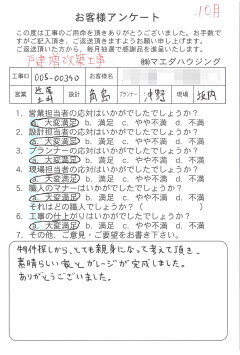 10月
お客様アンケート
この度は工事のご用命を頂きありがとうございました。お手数で
すがご記入頂き、ご返送頂きますようお願い申し上げます。
ご返送頂いた方から、毎月抽選で感謝品を進呈いたします。
戸建増改築工事
㈱マエダハウジング
工事ID 005-00340 お客様名
営業 設計 角島 プランナー 沖野 現場 坂内
1. 営業担当者の応対はいかがでしたでしょうか?
a. 大変満足 b. 満足 c. やや不満 d. 不満
2. 設計担当者の応対はいかがでしたでしょうか?
a. 大変満足 b. 満足 c. やや不満 d. 不満
3. プランナーの応対はいかがでしたでしょうか?
a. 大変満足 b. 満足 c. やや不満 d. 不満
4. 現場担当者の応対はいかがでしたでしょうか?
a. 大変満足 b. 満足 c. やや不満 d. 不満
5. 職人のマナーはいかがでしたでしょうか?
a. 大変満足 b. 満足 c. やや不満 d. 不満
それはどの職人でしょうか?( )
6. 工事の仕上がりはいかがでしたでしょうか?
a. 大変満足 b. 満足 c. やや不満 d. 不満
7. その他、ご意見・ご要望をお書き下さい。
物件探しから、とても親身になって考えて頂き、
素晴らしい家とガレージが完成しました。
ありがとうございました。